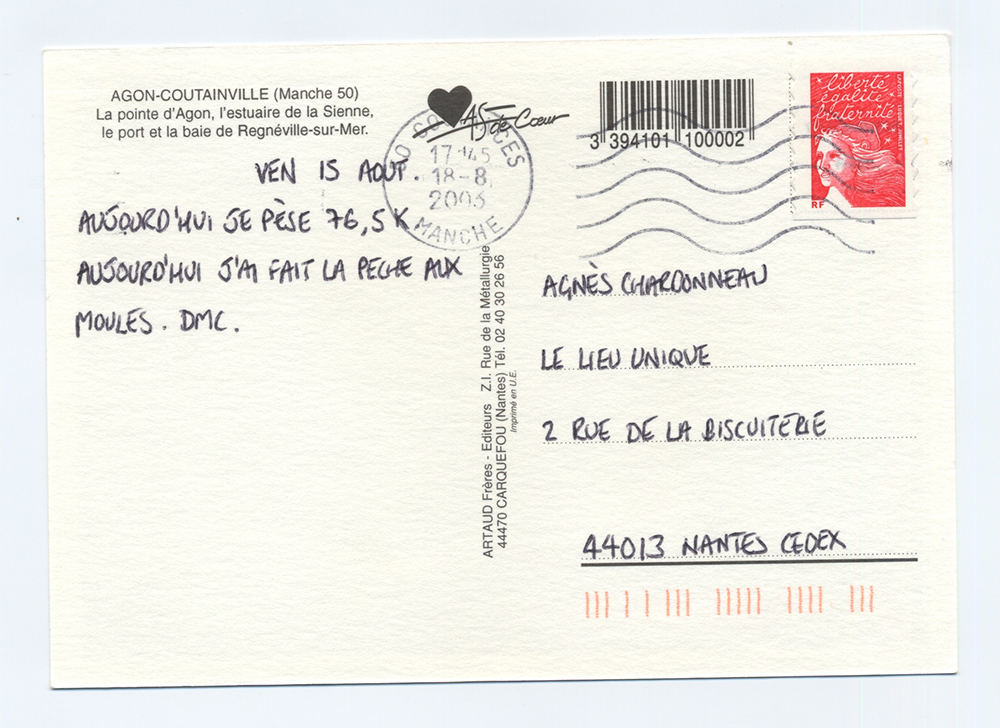 AGON-COUTAINVILLE (Manche 50)
La pointe d'Agon, l'estuaire de la Sienne,
le port et la baie de Regnéville-sur-Mer.
AS de Cœur
3 394101 100002
liberté
égalité
fraternité
RF
17 45
18-8
2003
MANCHE
VEN 15 AOUT.
AUJOURD'HUI JE PÈSE 76,5 K
AUJOURD'HUI J'AI FAIT LA PECHE AUX
MOULES. DMC.
ARTAUD Frères - Editeurs Z.I. Rue de la Métallurgie
44470 CARQUEFOU (Nantes) Tél. 02 40 30 26 56
Imprimé en U.E.
AGNÈS CHARDONNEAU
LE LIEU UNIQUE
2 RUE DE LA BISCUITERIE
44013 NANTES CEDEX